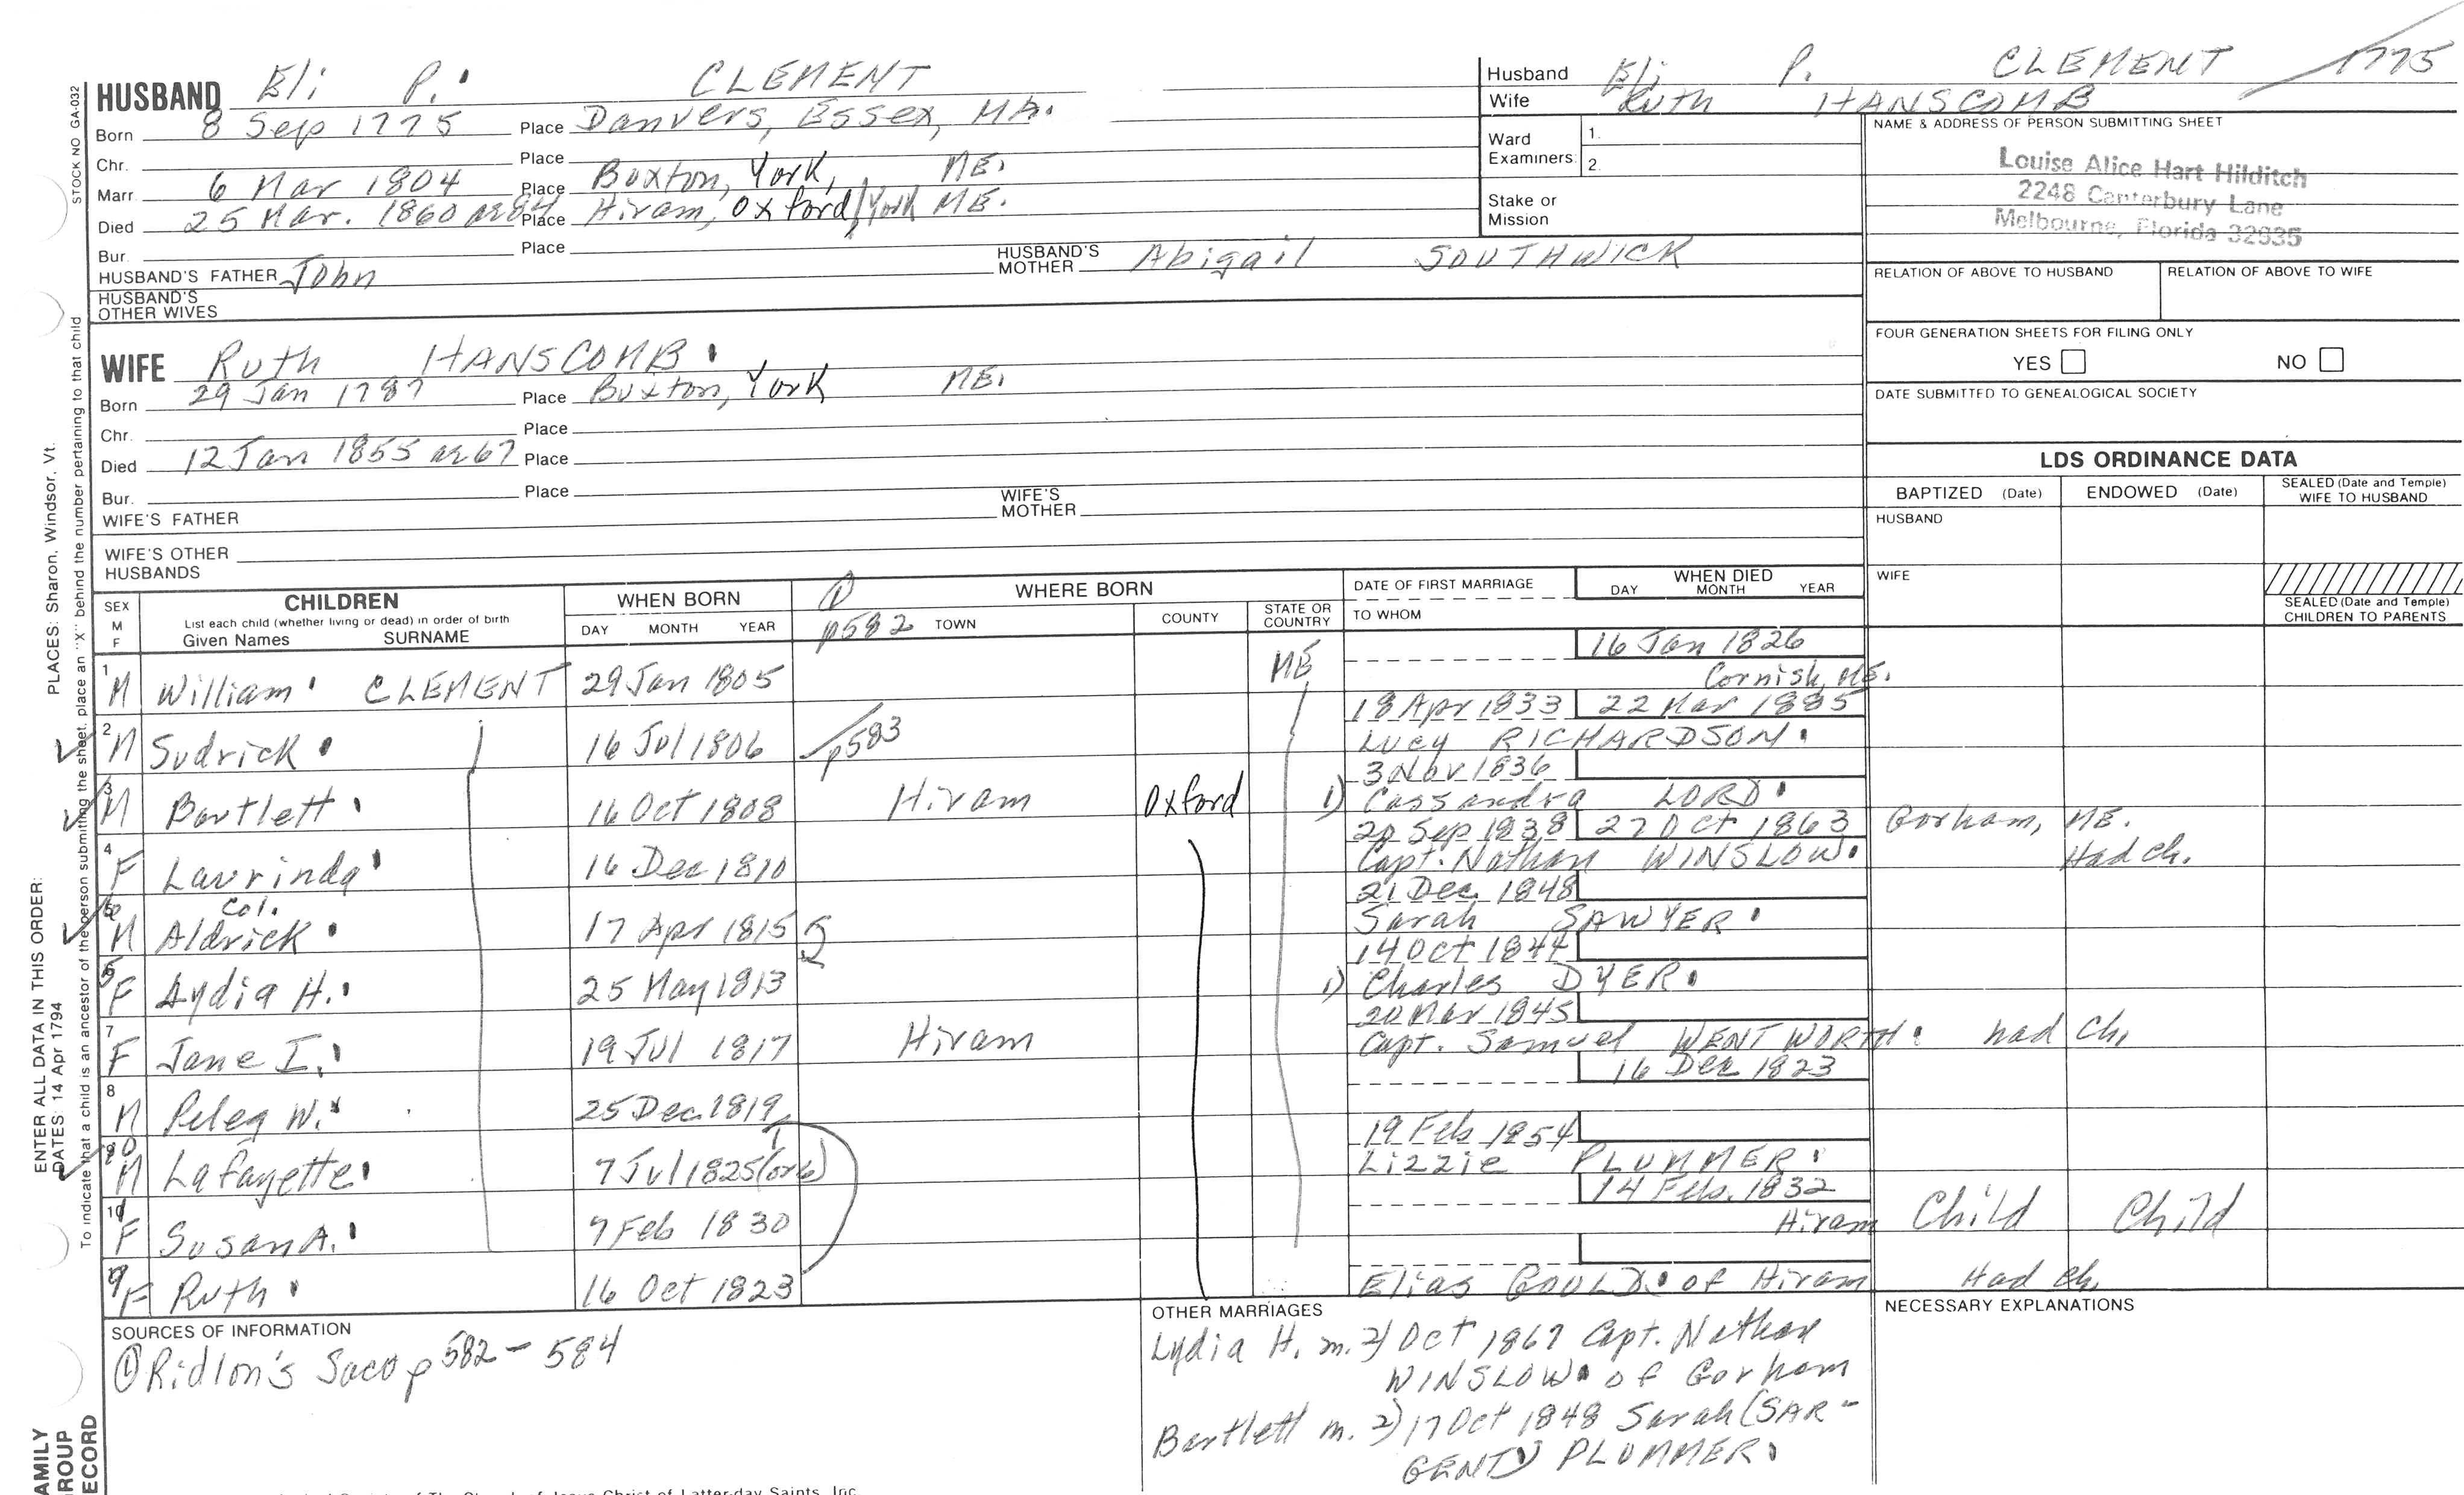 HUSBAND Eli P. CLEMENT
Born 8 Sep 1775 Place Danvers, Essex, MA.
Chr. Place
Marr. 6 Mar 1804 Place Buxton, York, ME.
Died 25 Mar. 1860 ae 84 Place Hiram, Oxford/York ME.
Bur. Place
HUSBAND'S FATHER John HUSBAND'S MOTHER Abigail SOUTHWICK
HUSBAND'S OTHER WIVES
WIFE Ruth HANSCOMB.
Born 29 Jan 1787 Place Buxton, York ME.
Chr. Place
Died 12 Jan 1855 ae 67 Place
Bur. Place
WIFE'S FATHER WIFE'S MOTHER
WIFE'S OTHER HUSBANDS
Husband Eli P. CLEMENT 1775
Wife Ruth HANSCOMB
Ward Examiners: 1. 2.
Stake or Mission
NAME & ADDRESS OF PERSON SUBMITTING SHEET
Louise Alice Hart Hilditch
2248 Canterbury Lane
Melbourne, Florida 32935
RELATION OF ABOVE TO HUSBAND RELATION OF ABOVE TO WIFE
FOUR GENERATION SHEETS FOR FILING ONLY
YES NO
DATE SUBMITTED TO GENEALOGICAL SOCIETY
LDS ORDINANCE DATA
BAPTIZED (Date) ENDOWED (Date) SEALED (Date and Temple) WIFE TO HUSBAND
HUSBAND
WIFE
SEALED (Date and Temple) CHILDREN TO PARENTS
SEX M F
CHILDREN
List each child (whether living or dead) in order of birth
Given Names SURNAME
WHEN BORN
DAY MONTH YEAR
WHERE BORN
① p582 TOWN COUNTY STATE OR COUNTRY
DATE OF FIRST MARRIAGE
TO WHOM
WHEN DIED
DAY MONTH YEAR
16 Jan 1826
1 M William CLEMENT 29 Jan 1805 ME Cornish, ME.
18 Apr 1833 22 Mar 1885
2 M Sudrick 16 Jul 1806 p583 Lucy RICHARDSON.
3 Nov 1836
3 M Bartlett 16 Oct 1808 Hiram Oxford 1) Cassandra LORD.
20 Sep 1838 27 Oct 1863 Gorham, ME.
4 F Laurinda 16 Dec 1810 Capt. Nathan WINSLOW. Had ch.
21 Dec. 1848
Col.
M Aldrick 17 Apr 1815 Sarah SAWYER.
14 Oct 1844
F Lydia H. 25 May 1813 1) Charles DYER.
20 Mar 1845
7 F Jane I. 19 Jul 1817 Hiram Capt. Samuel WENTWORTH. had ch.
16 Dec 1823
8 M Peleg W. 25 Dec. 1819
19 Feb 1854
M Lafayette 7 Jul 1825 (or 6) Lizzie PLUMMER.
14 Feb. 1832
10 F Susan A. 7 Feb 1830 Hiram Child Child
9 F Ruth 16 Oct 1823 Elias GOULD. of Hiram Had ch.
SOURCES OF INFORMATION
① Ridlon's Saco p 582-584
OTHER MARRIAGES
Lydia H. m. 2) Oct 1867 Capt. Nathan
WINSLOW. of Gorham
Bartlett m. 2) 17 Oct 1848 Sarah (SAR-
GENT) PLUMMER.
NECESSARY EXPLANATIONS
STOCK NO GA-032
ENTER ALL DATA IN THIS ORDER: PLACES: Sharon, Windsor, Vt.
DATES: 14 Apr 1794
To indicate that a child is an ancestor of the person submitting the sheet, place an "X" behind the number pertaining to that child
AMILY
ROUP
ECORD
of The Church of Jesus Christ of Latter-day Saints, Inc